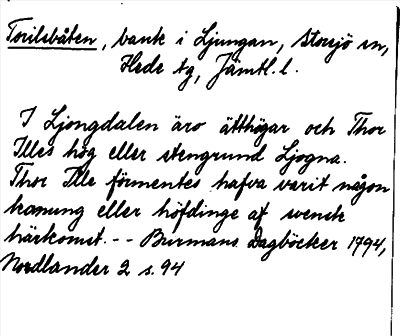 Torilsbåten, bank i Ljungan, Storsjö sn,
Hede tg, Jämtl. l.
I Ljongdalen äro ätthögar och Thor
Illes hög eller stengrund Ljogna.
Thor Ille förmentes hafva varit någon
konung eller höfdinge af svensk
härkomst. -- Burmans Dagböcker 1794,
Nordlander 2 s. 94